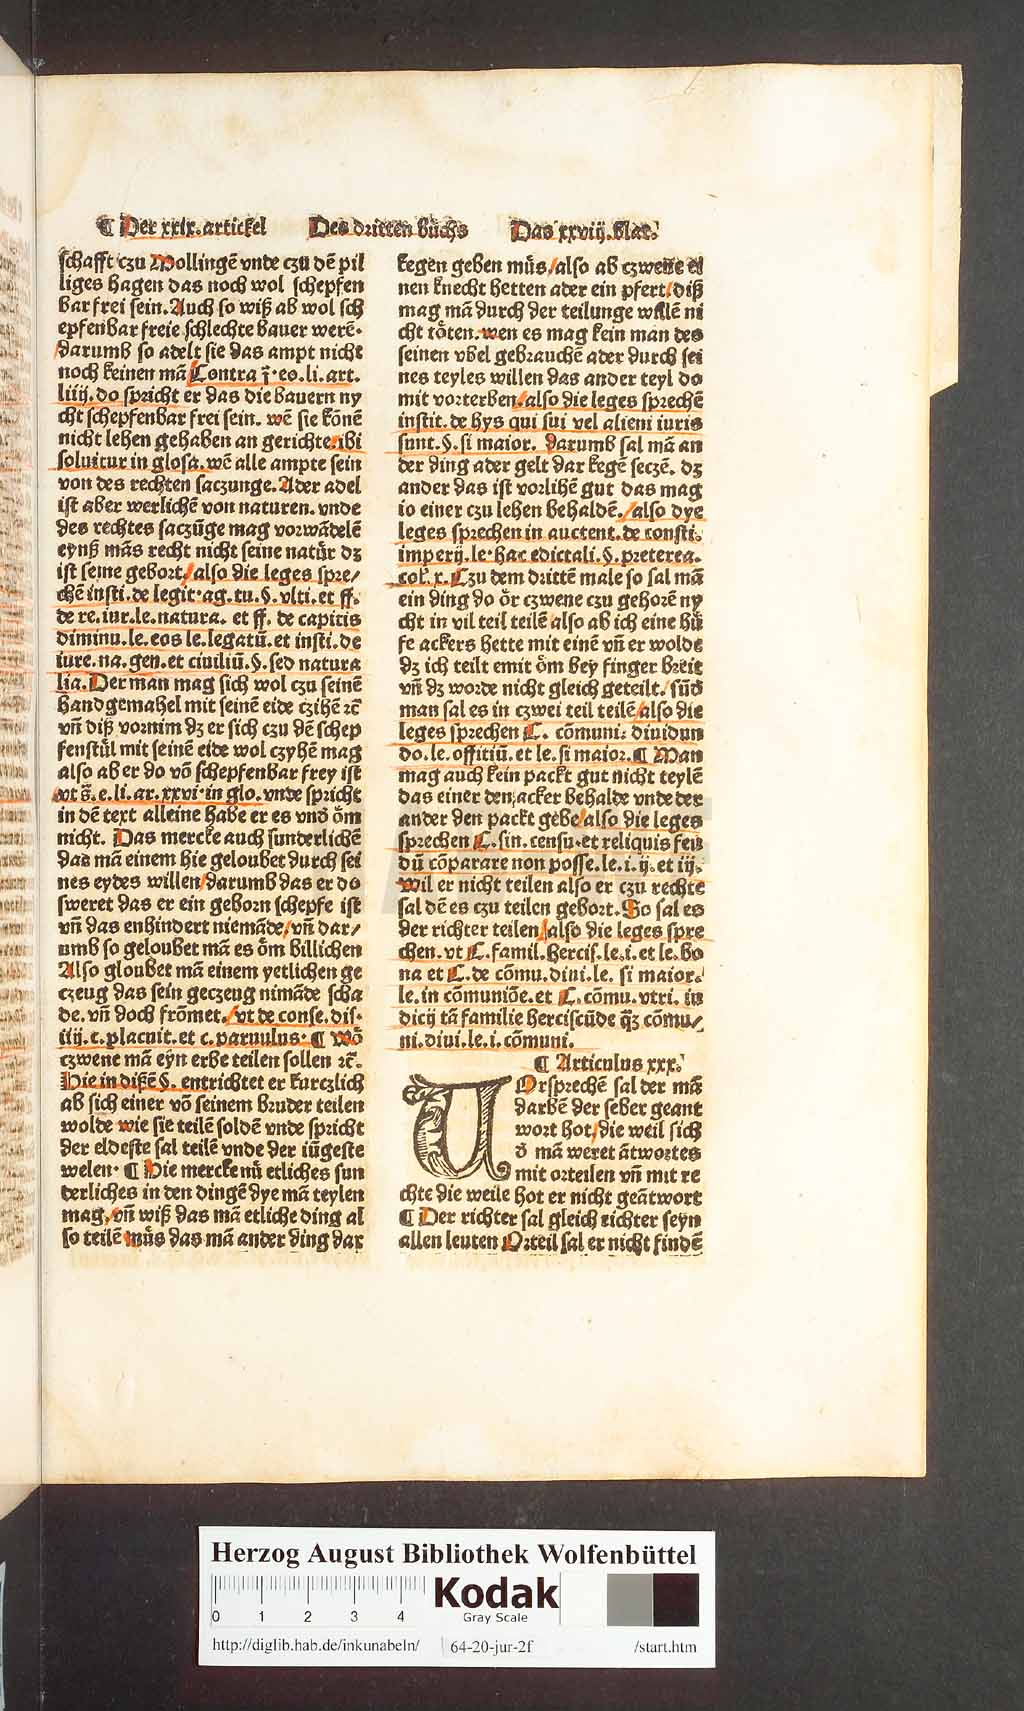 ¶ Der xxix. artickel Des dritten buchs Das xxviij. blat.
schafft czu Wollingē vnde czu dē pil
liges hagen das noch wol schepfen
bar frei sein. Auch so wiß ab wol sch
epfenbar freie schlechte bauer werē.
/darumb so adelt sie das ampt nicht
noch keinen mā /Contra j. eo. li. art.
liiij. do spricht er das die bauern ny
cht schepfenbar frei sein. wē sie kōnē
nicht lehen gehaben an gerichte. ibi
soluitur in glosa. wē alle ampte sein
von des rechten saczunge. Ader adel
ist aber werlichē von naturen. vnde
des rechtes saczūge mag vorwādelē
eynß mās recht nicht seine natůr dz
ist seine gebort/ also die leges spre/
chē insti. de legit. ag. tu. §. vlti. et ff.
de re. iur. le. natura. et ff. de capitis
diminu. le. eos le. legatū. et insti. de
iure. na. gen. et ciuiliū. §. sed natura
lia. Der man mag sich wol czu seinē
handgemahel mit seinē eide czihē ⁊c̄
vn̄ diß vornim dz er sich czu dē schep
fenstůl mit seinē eide wol czyhē mag
also ab er do vō schepfenbar frey ist
/vt s̄. e. li. ar. xxvi. in glo. vnde spricht
in dē text alleine habe er es vnd öm
nicht. Das mercke auch sunderlichē
das mā einem hie geloubet durch sei
nes eydes willen/ darumb das er do
sweret das er ein geborn schepfe ist
vn̄ das enhindert niemāde/ vn̄ dar/
umb so geloubet mā es öm billichen
Also gloubet mā einem yetlichen ge
czeug das sein geczeug nimāde scha
de. vn̄ doch frōmet. /vt de conse. dis.
iiij. c. placuit. et c. paruulus. ¶ Wō
czwene mā eyn erbe teilen sollen ⁊c̄.
Hie in disē §. entrichtet er kurczlich
ab sich einer vō seinem bruder teilen
wolde wie sie teilē soldē vnde spricht
der eldeste sal teilē vnde der iūgeste
welen. ¶ Hie mercke nů etliches sun
derliches in den dingē dye mā teylen
mag. /vn̄ wiß das mā etliche ding al
so teilē můs das mā ander ding dar
kegen geben můs/ also ab czwene ei
nen knecht hetten ader ein pfert/ diß
mag mā durch der teilunge willē ni
cht töten. wen es mag kein man des
seinen vbel gebrauchē ader durch sei
nes teyles willen das ander teyl do
mit vorterben/ also die leges sprechē
instit. de hys qui sui vel alieni iuris
sunt. §. si maior. Darumb sal mā an
der ding ader gelt dar kegē seczē. dz
ander das ist vorlihē gut das mag
io einer czu lehen behaldē. /also dye
leges sprechen in auctent. de consti.
imperij. le. hac edictali. §. preterea.
col. x. Czu dem drittē male so sal mā
ein ding do ör czwene czu gehorē ny
cht in vil teil teilē also ab ich eine hů
fe ackers hette mit einē vn̄ er wolde
dz ich teilt emit öm bey finger breit
vn̄ dz worde nicht gleich geteilt. /sūd
man sal es in czwei teil teilē/ also die
leges sprechen C. cōmuni. diuidun
do. le. offitiū. et le. si maior. ¶ Man
mag auch kein packt gut nicht teylē
das einer den acker behalde vnde der
ander den packt gebe/ also die leges
sprechen C. sin. censu. et reliquis fun
dū cōparare non posse. le. i. ij. et iij.
Wil er nicht teilen also er czu rechte
sal dē es czu teilen gebort. So sal es
der richter teilen/ also die leges spre
chen. vt C. famil. hercis. le. i. et le. bo
na et C. de cōmu. diui. le. si maior.
le. in cōmuniōe. et C. cōmu. vtri. iu
dicij tā familie herciscūde q̄z cōmu/
ni. diui. le. i. cōmuni.
¶ Articulus xxx.
UOrsprechē sal der mā
darbē der seber geant
wort hot/ die weil sich
d̄ mā weret ātwortes
mit orteilen vn̄ mit re
chte die weile hot er nicht geātwort
¶ Der richter sal gleich richter seyn
allen leuten Orteil sal er nicht findē
Herzog August Bibliothek Wolfenbüttel
Kodak
Gray Scale
0 1 2 3 4
http://diglib.hab.de/inkunabeln/ 64-20-jur-2f /start.htm